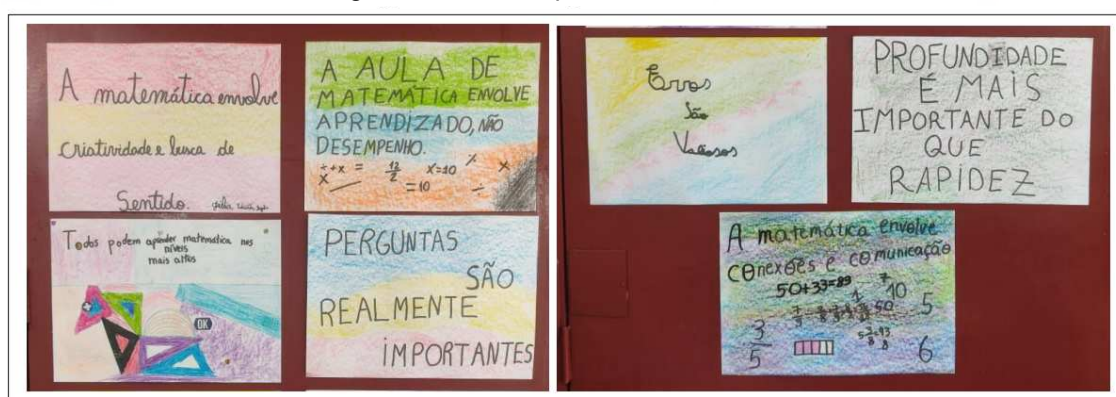 A matemática envolve
Criatividade e busca de
Sentido.
A AULA DE
MATEMÁTICA ENVOLVE
APRENDIZADO, NÃO
DESEMPENHO.
12/2
X=10
=10
Todos podem aprender matemática nos
níveis
mais altos
OK
PERGUNTAS
SÃO
REALMENTE
IMPORTANTES
Erros
São
Valiosos
PROFUNDIDADE
É MAIS
IMPORTANTE DO
QUE
RAPIDEZ
A matemática envolve
conexões e comunicação
50+33=89
10
50
5
3/5
6